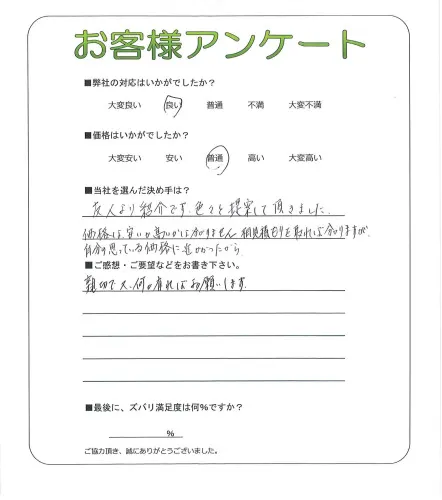 お客様アンケート
■弊社の対応はいかがでしたか?
大変良い 良い 普通 不満 大変不満
■価格はいかがでしたか?
大変安い 安い 普通 高い 大変高い
■当社を選んだ決め手は?
友人より紹介です。色々と提案して頂きました。
価格は安いか高いかは分りません 相見積もりを取れば分りますが、
自分の思っている価格に近かったから
■ご感想・ご要望などをお書き下さい。
親切で 何か有ればお願いします
■最後に、ズバリ満足度は何%ですか?
%
ご協力頂き、誠にありがとうございました。